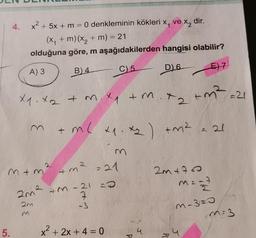 4. x² + 5x + m = 0 denkleminin kökleri x₁ ve x₂ dir.
(x₁ + m)(x₂ + m) = 21
olduğuna göre, m aşağıdakilerden hangisi olabilir?
A) 3 B) 4 C) 5 D) 6 E) 7
x₁.x₂ + m.x₁ + m.x₂ + m² = 21
m + m( x₁.x₂ ) + m² = 21
m
m + m² + m² = 21
2m² + m - 21 = 0
2m 7
m -3
2m + 7 = 0
m = -7/2
m - 3 = 0
m = 3
5. x² + 2x + 4 = 0